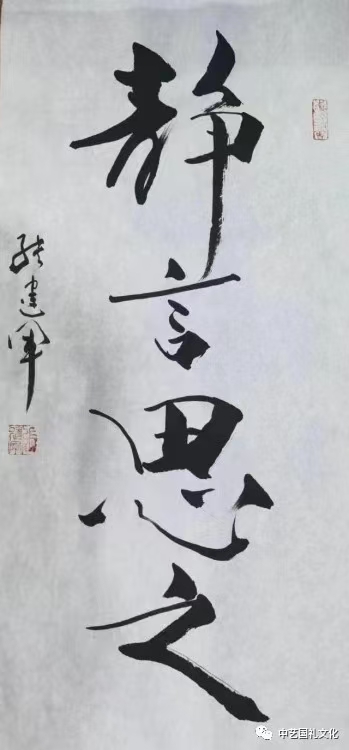 静言思之
张建军
中艺国礼文化